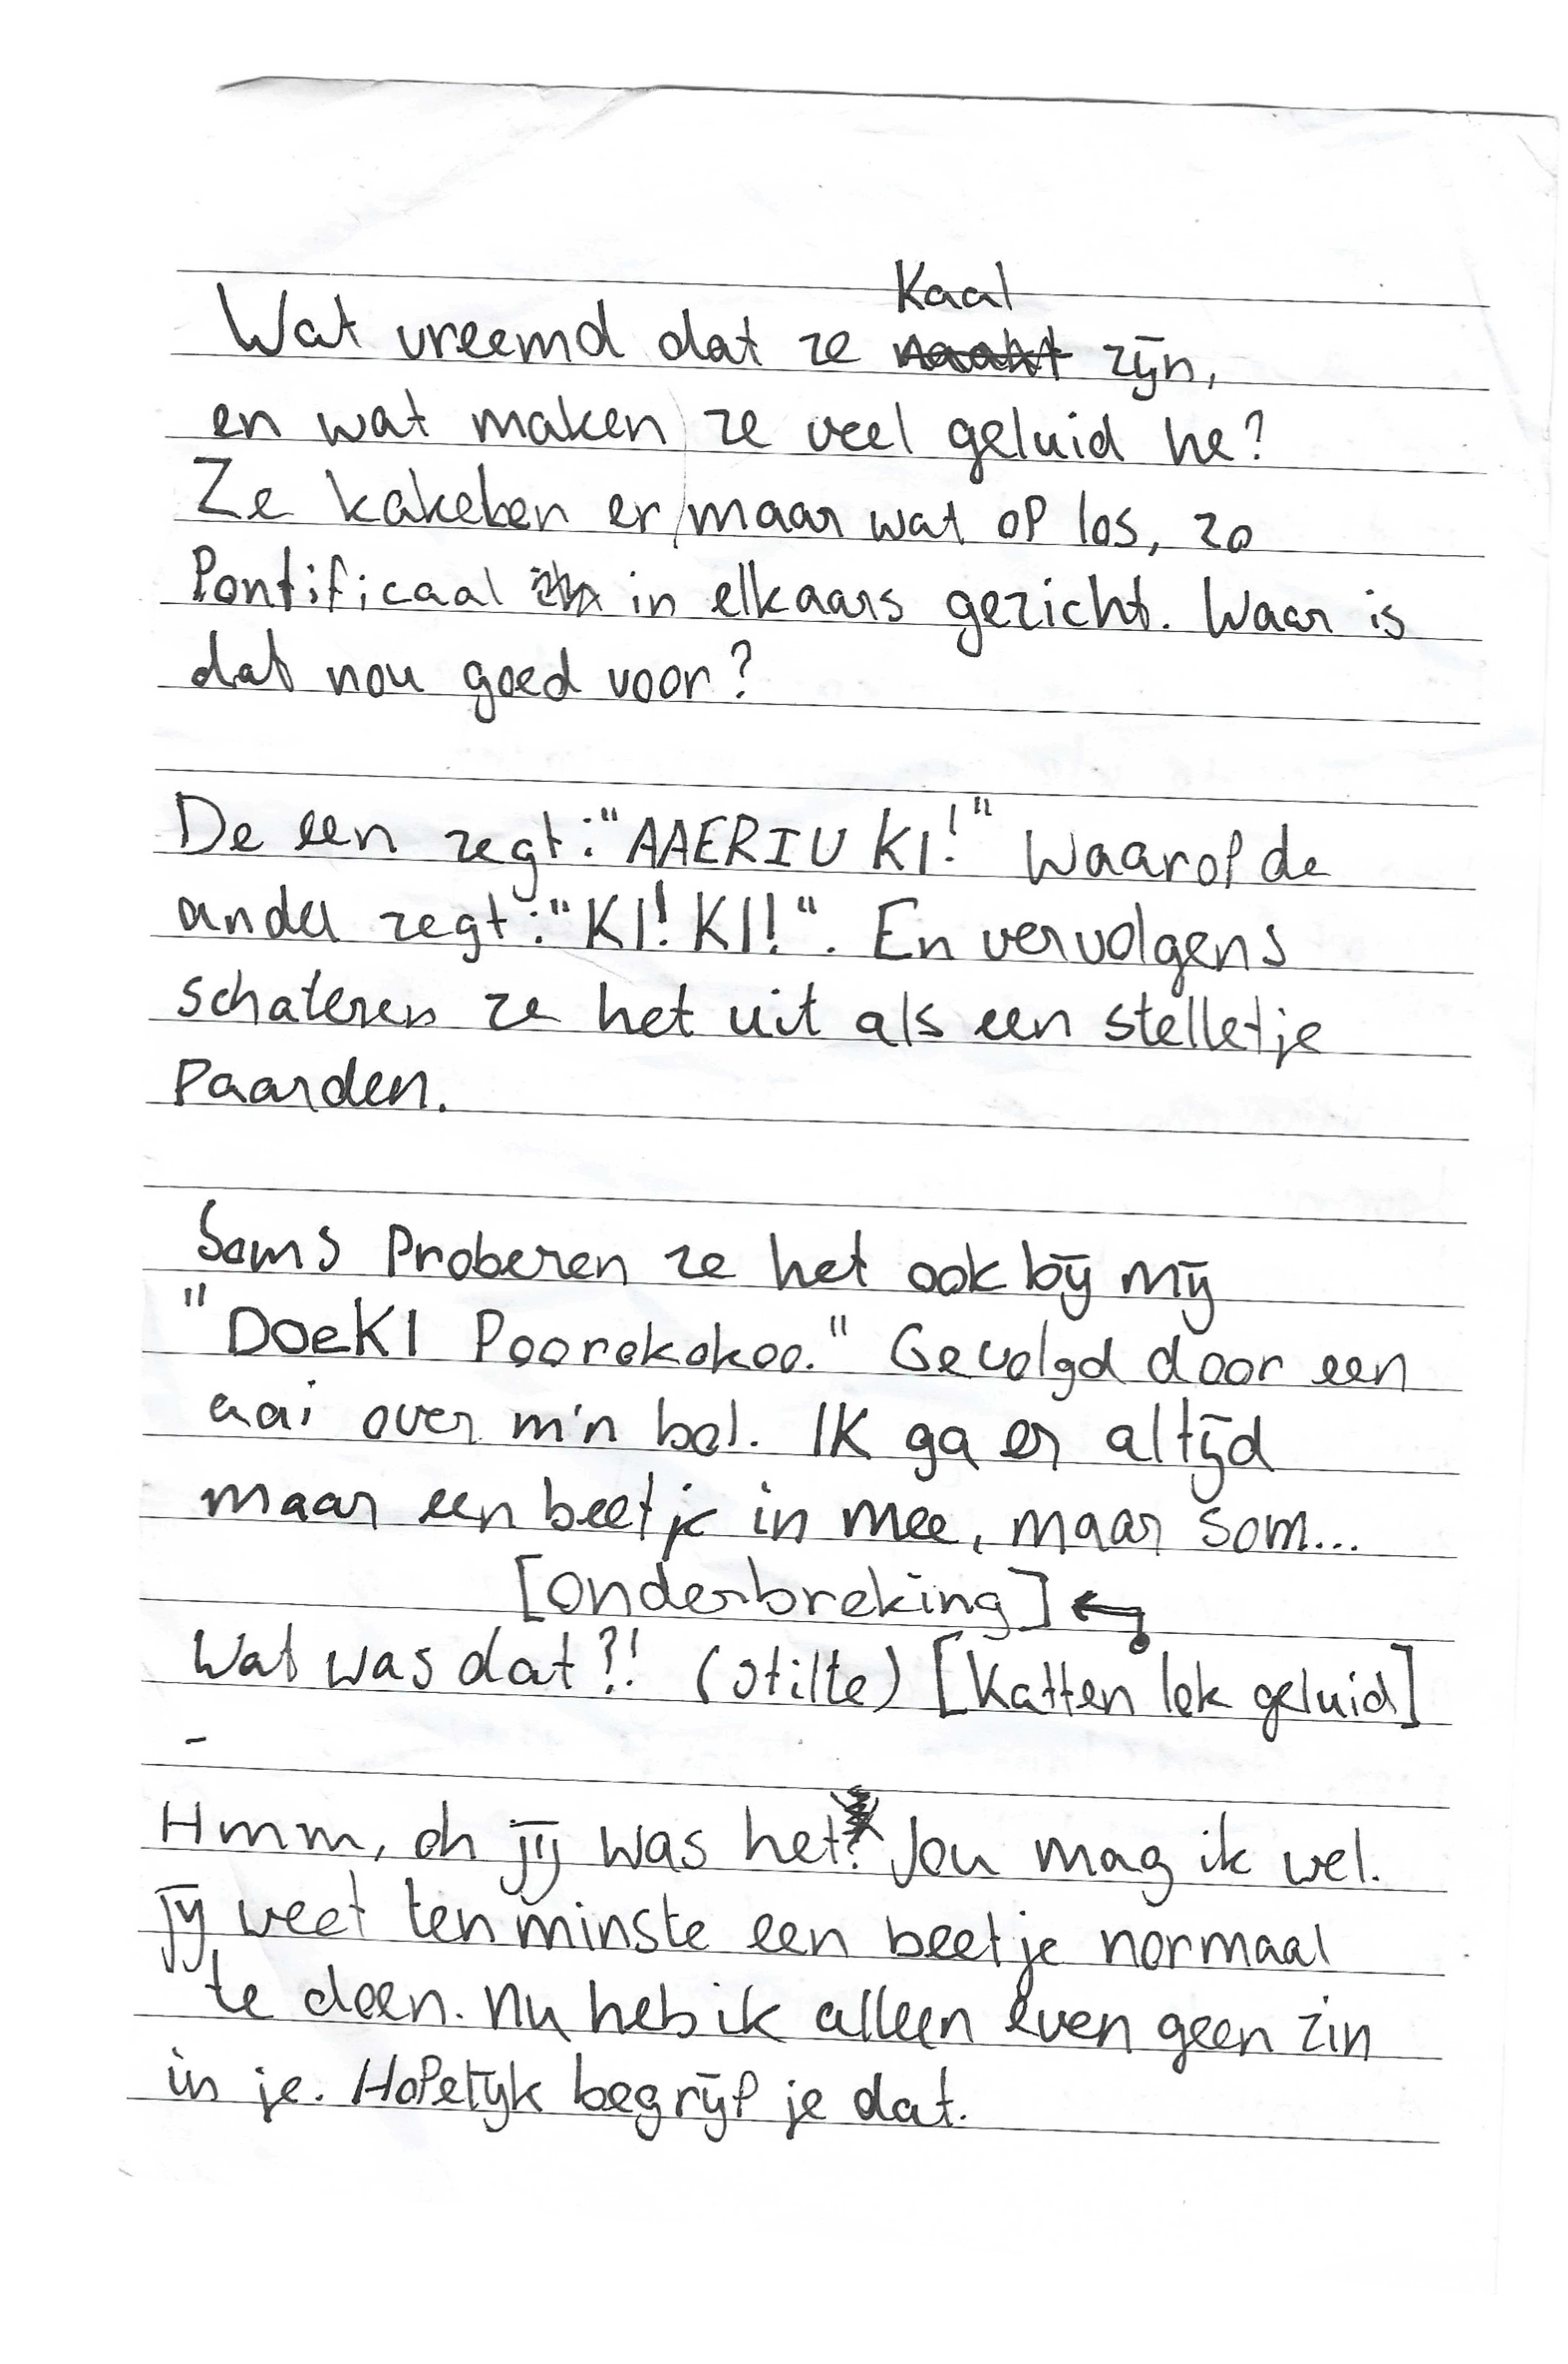 Kaal
Wat vreemd dat ze naakt zijn,
en wat maken ze veel geluid he?
Ze kakelen er maar wat op los, zo
Pontificaal in elkaars gezicht. Waar is
dat nou goed voor?
De een zegt: "AAERIU KI!" Waarop de
ander zegt: "KI! KI!". En vervolgens
schateren ze het uit als een stelletje
Paarden.
Soms Proberen ze het ook bij mij
"DoeKI Poorekokoo." Gevolgd door een
aai over m'n bol. IK ga er altijd
maar een beetje in mee, maar som...
[onderbreking] ←
Wat was dat?! (stilte) [Katten lok geluid]
-
Hmm, oh jij was het? Jou mag ik wel.
jij weet ten minste een beetje normaal
te doen. Nu heb ik alleen even geen zin
in je. Hopelijk begrijp je dat.